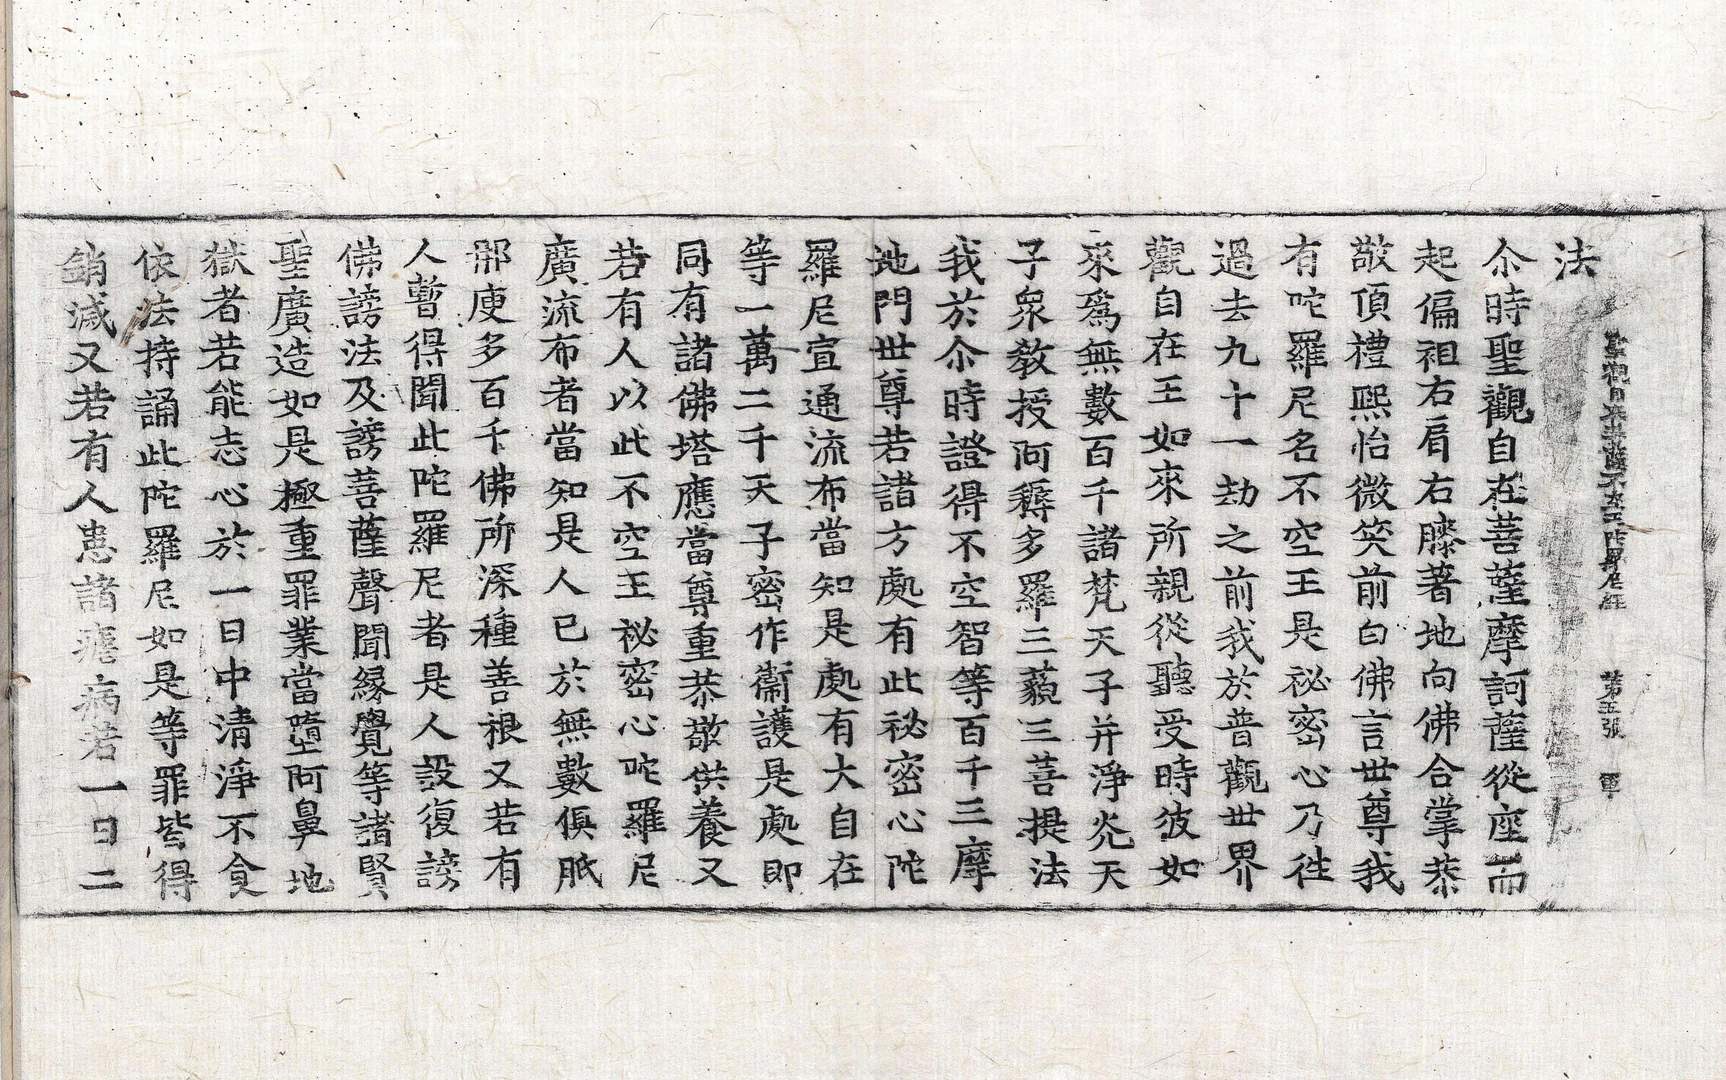 聖觀自在菩薩不空王陀羅尼經　第五張　軍
法
尒時聖觀自在菩薩摩訶薩從座而
起偏袒右肩右膝著地向佛合掌恭
敬頂禮熙怡微笑前白佛言世尊我
有咜羅尼名不空王是祕密心乃往
過去九十一劫之前我於普觀世界
觀自在王如來所親從聽受時彼如
來爲無數百千諸梵天子并淨光天
子衆敎授阿耨多羅三藐三菩提法
我於尒時證得不空智等百千三摩
地門世尊若諸方處有此祕密心陀
羅尼宣通流布當知是處有大自在
等一萬二千天子密作衞護是處即
同有諸佛塔應當尊重恭敬供養又
若有人以此不空王祕密心咜羅尼
廣流布者當知是人已於無數俱胝
那庾多百千佛所深種善根又若有
人暫得聞此陀羅尼者是人設復謗
佛謗法及謗菩薩聲聞緣覺等諸賢
聖廣造如是極重罪業當墮阿鼻地
獄者若能志心於一日中清淨不食
依法持誦此陀羅尼如是等罪皆得
銷滅又若有人患諸瘧病若一日二